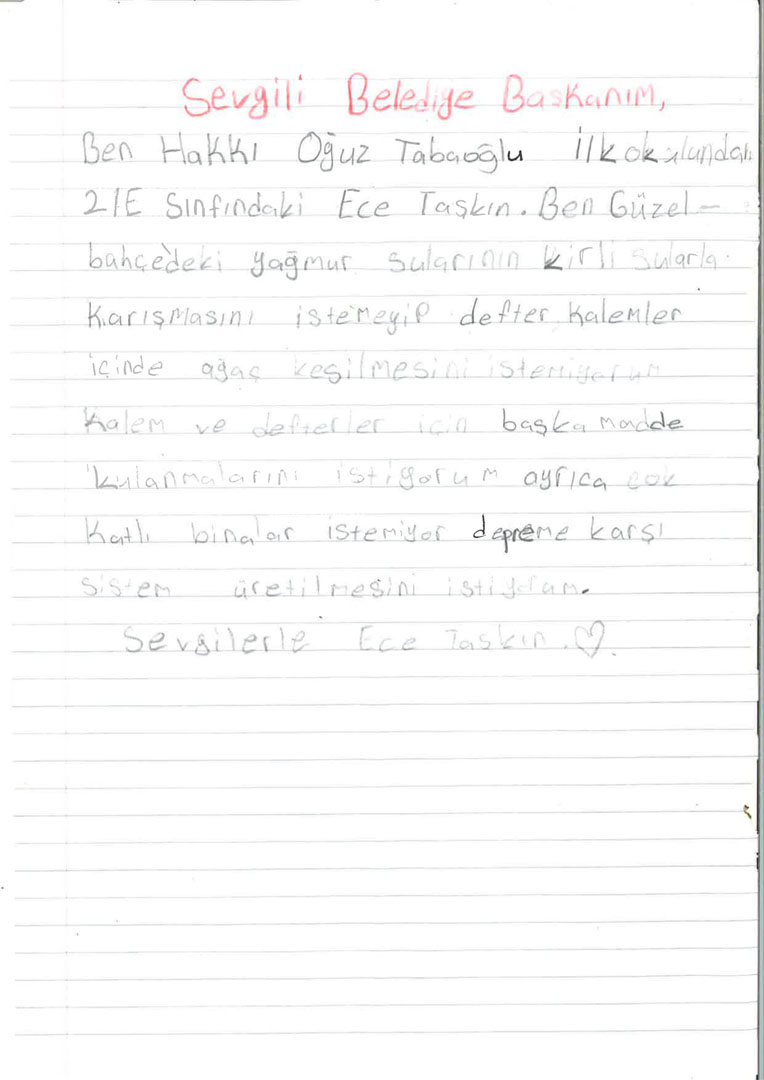 Sevgili Belediye Başkanım,
Ben Hakkı Oğuz Tabaoğlu İlkokulundan
2/E Sınfındaki Ece Taşkın. Ben Güzel-
bahçe'deki yağmur sularının kirli sularla
karışmasını istemeyip defter, kalemler
içinde ağaç kesilmesini istemiyorum
kalem ve defterler için başka madde
kulanmalarını istiyorum ayrıca çok
katlı binalar istemiyor depreme karşı
sistem üretilmesini istiyorum.
Sevgilerle Ece Taşkın.